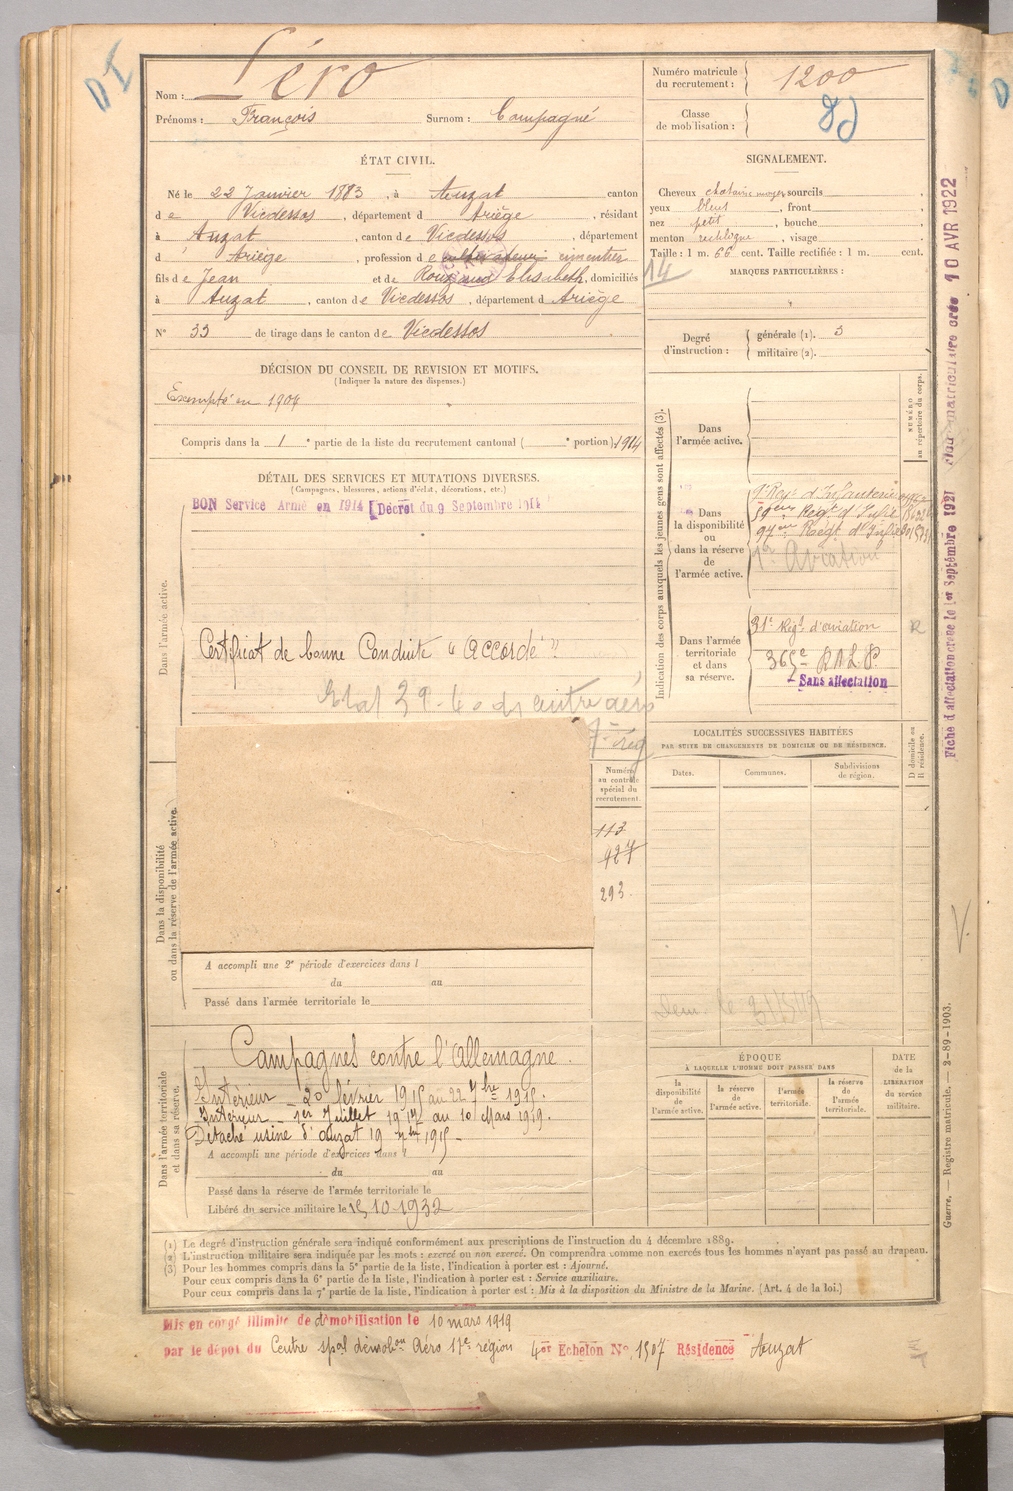 Nom : Léro
Prénoms : François Surnom : Campagné
Numéro matricule du recrutement : 1200
Classe de mobilisation :
ÉTAT CIVIL.
Né le 22 Janvier 1883, à Auzat canton
de Vicdessos, département d Ariège, résidant
à Auzat, canton de Vicdessos, département
d Ariège, profession de cultivateur cimentier
fils de Jean et de Rouzaud Elisabeth, domiciliés
à Auzat, canton de Vicdessos, département d Ariège
N° 33 de tirage dans le canton de Vicdessos
SIGNALEMENT.
Cheveux chatains moyen sourcils
yeux bleus, front
nez petit, bouche
menton rectiligne, visage
Taille : 1 m. 66 cent. Taille rectifiée : 1 m. cent.
14
MARQUES PARTICULIÈRES :
Degré d'instruction : générale (1). 3
militaire (2).
DÉCISION DU CONSEIL DE REVISION ET MOTIFS.
(Indiquer la nature des dispenses.)
Exempté en 1904
Compris dans la 1e partie de la liste du recrutement cantonal ( e portion). 1914
DÉTAIL DES SERVICES ET MUTATIONS DIVERSES.
(Campagnes, blessures, actions d'éclat, décorations, etc.)
BON Service Armé en 1914 [Décret du 9 Septembre 1914
Dans l'armée active.
Certificat de bonne Conduite "Accordé"
Indication des corps auxquels les jeunes gens sont affectés (3).
NUMÉRO au répertoire du corps.
Dans l'armée active.
Dans la disponibilité ou dans la réserve de l'armée active.
9e Regt d'Infanterie
59eme Regt d'Infie
97eme Regt d'Infie
1er Aviation
Dans l'armée territoriale et dans sa réserve.
31e Regt d'aviation R
Sans affectation
LOCALITÉS SUCCESSIVES HABITÉES
PAR SUITE DE CHANGEMENTS DE DOMICILE OU DE RÉSIDENCE.
D domicile ou R résidence.
Dates. Communes. Subdivisions de région.
Dans la disponibilité ou dans la réserve de l'armée active.
Numéro au contrôle spécial du recrutement.
113
927
293
A accompli une 2e période d'exercices dans l
du au
Passé dans l'armée territoriale le
Dans l'armée territoriale et dans sa réserve.
Campagnes contre l'Allemagne.
Intérieur - 20 février 1915 au 22 7bre 1915.
Intérieur - 1er Juillet 1917 au 10 Mars 1919.
Détaché usine d'Auzat
A accompli une période d'exercices dans l
du au
Passé dans la réserve de l'armée territoriale le
Libéré du service militaire le 15-10-1932
ÉPOQUE
À LAQUELLE L'HOMME DOIT PASSER DANS
la disponibilité de l'armée active. la réserve de l'armée active. l'armée territoriale. la réserve de l'armée territoriale.
DATE de la LIBÉRATION du service militaire.
(1) Le degré d'instruction générale sera indiqué conformément aux prescriptions de l'instruction du 4 décembre 1889.
(2) L'instruction militaire sera indiquée par les mots : exercé ou non exercé. On comprendra comme non exercés tous les hommes n'ayant pas passé au drapeau.
(3) Pour les hommes compris dans la 5e partie de la liste, l'indication à porter est : Ajourné.
Pour ceux compris dans la 6e partie de la liste, l'indication à porter est : Service auxiliaire.
Pour ceux compris dans la 7e partie de la liste, l'indication à porter est : Mis à la disposition du Ministre de la Marine. (Art. 4 de la loi.)
Mis en congé illimité de démobilisation le 10 mars 1919
par le dépôt du Centre spal démobon Aéro 17e région 4er Echelon N° 1507 Résidence Auzat
Fiche d'affectation créée le 1er Septembre 1921
Fiche matriculaire créée 10 AVR 1922
Guerre. — Registre matricule. — 2-89-1903.